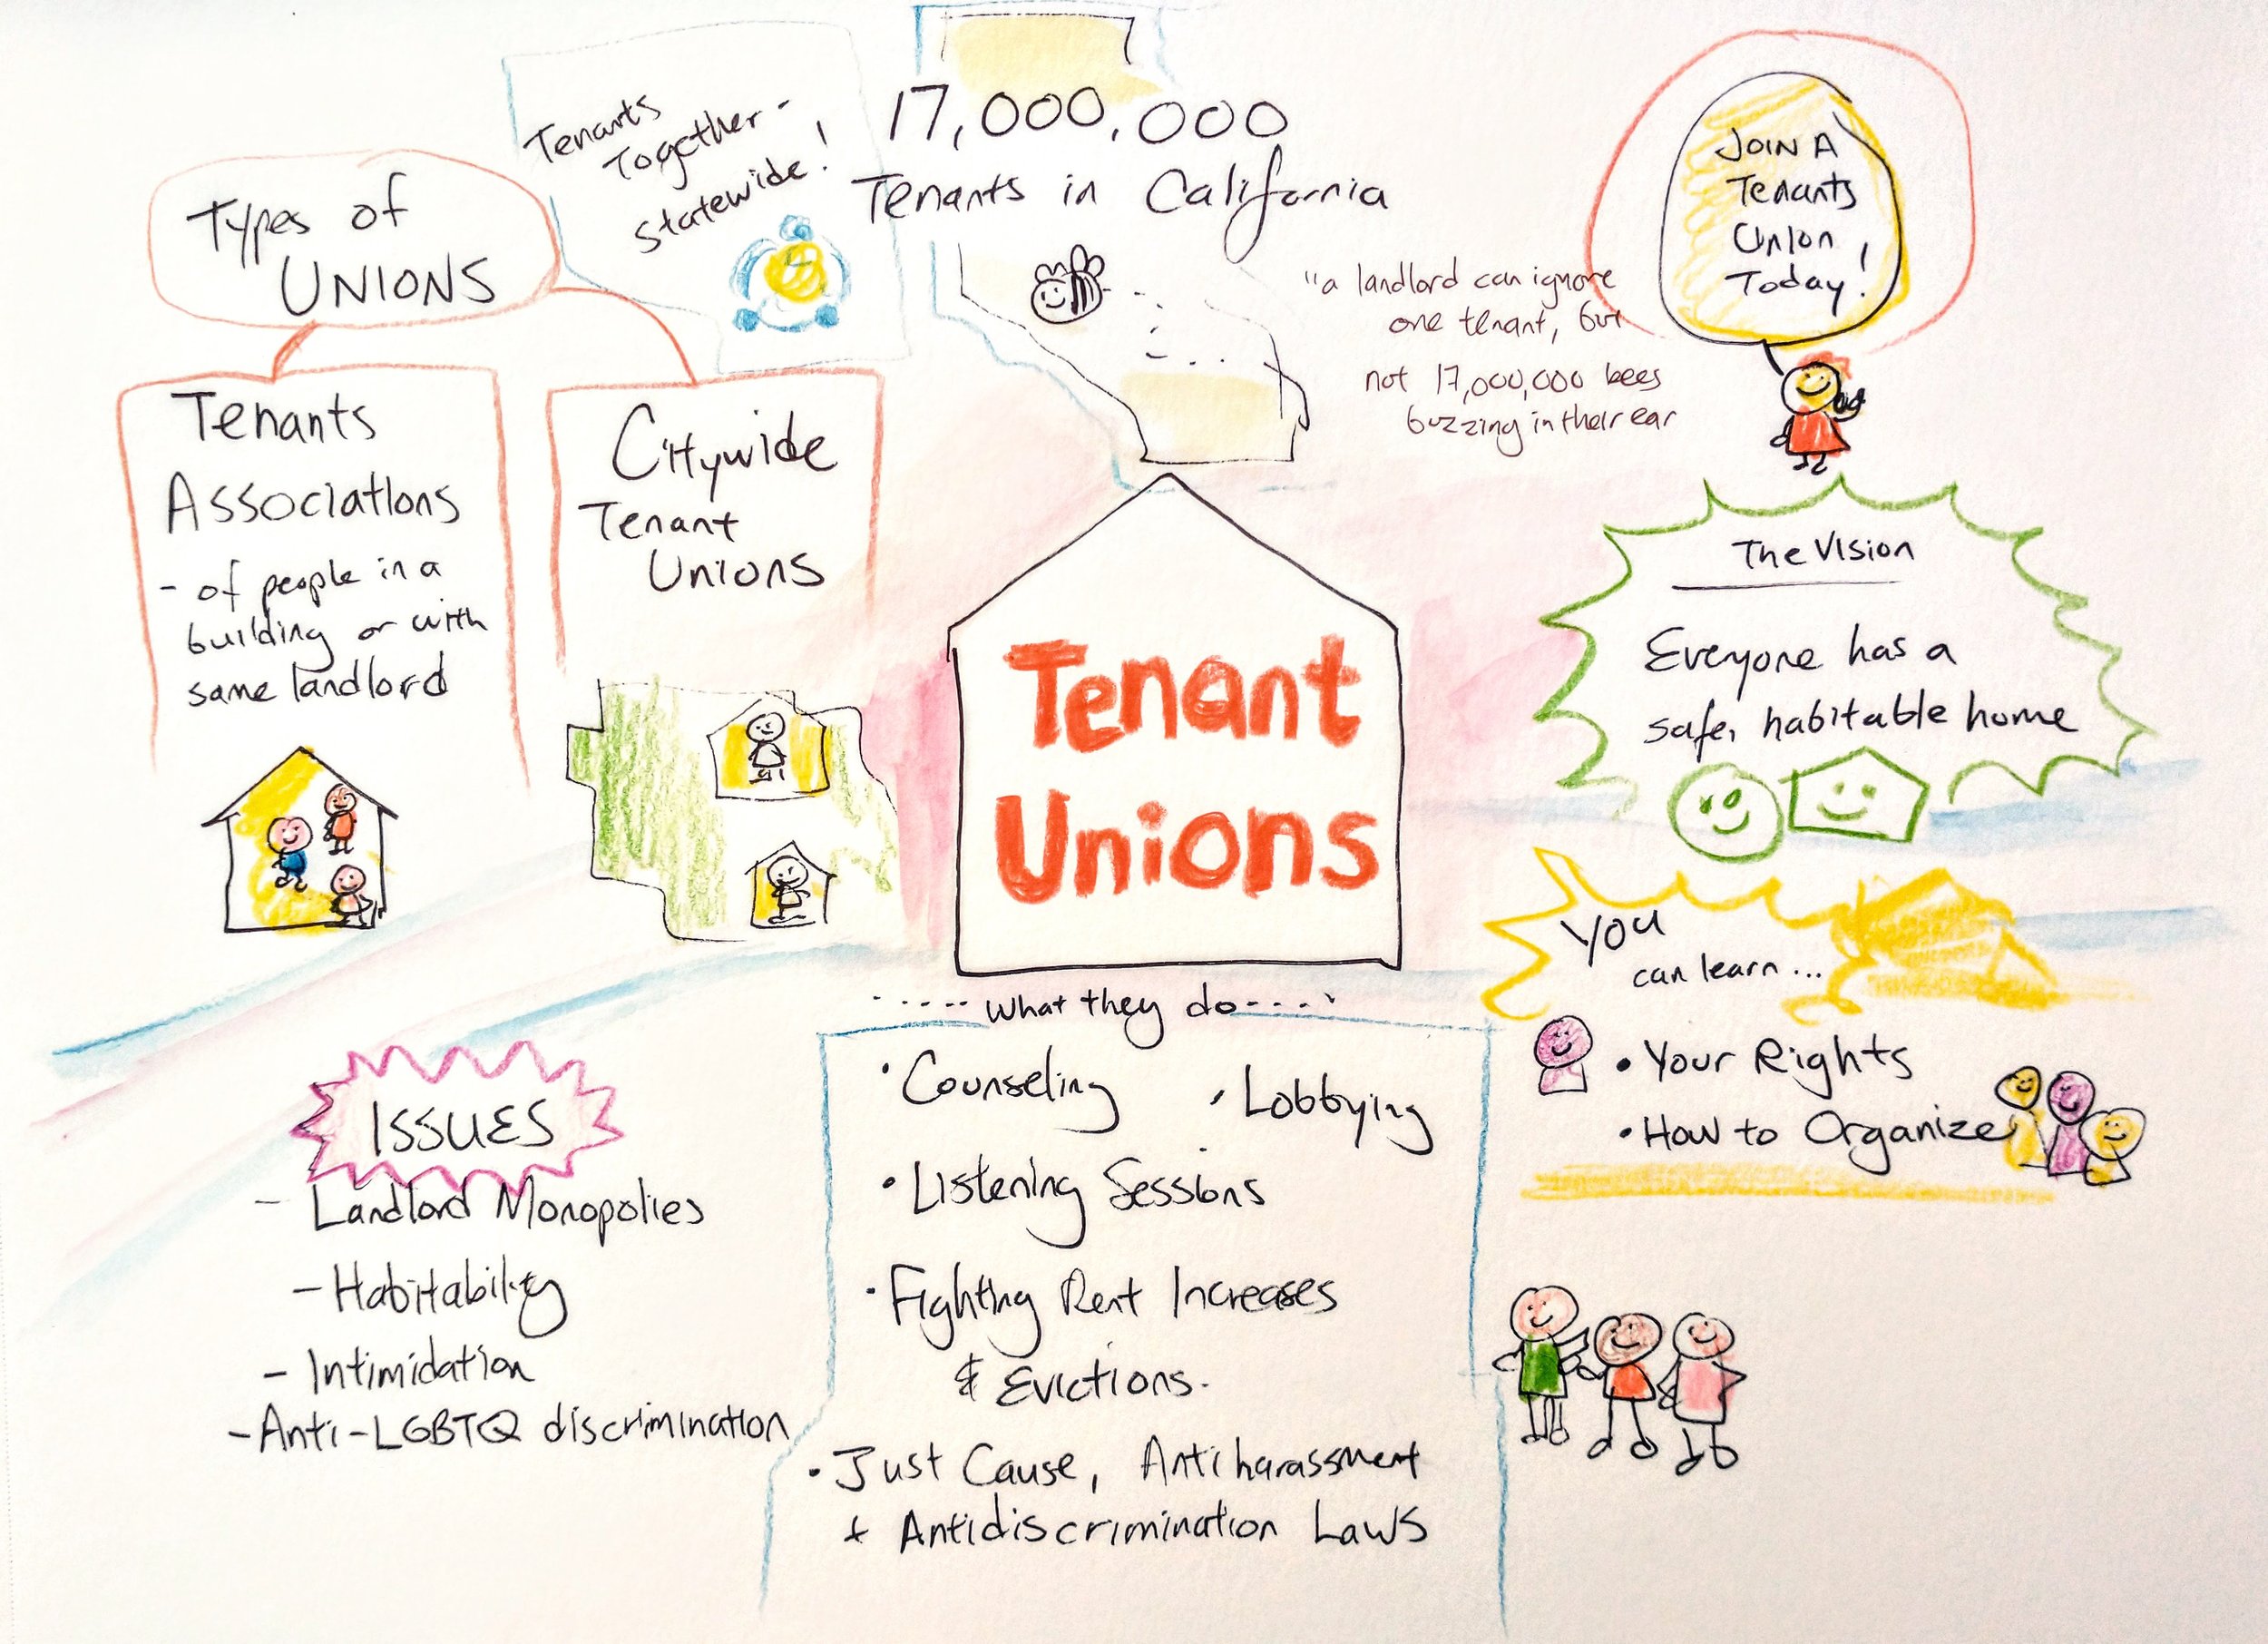 Tenants
Together -
statewide!
17,000,000
Tenants in California
"a landlord can ignore
one tenant, but
not 17,000,000 bees
buzzing in their ear
JOIN A
Tenants
Union
Today!
Types of
UNIONS
Tenants
Associations
- of people in a
building or with
same landlord
Citywide
Tenant
Unions
Tenant
Unions
The Vision
Everyone has a
safe, habitable home
You
can learn...
• Your Rights
• How to Organize
ISSUES
- Landlord Monopolies
- Habitability
- Intimidation
- Anti-LGBTQ discrimination
----- what they do ----
• Counseling
• Lobbying
• Listening Sessions
• Fighting Rent Increases
& Evictions.
• Just Cause, Antiharassment
+ Antidiscrimination Laws